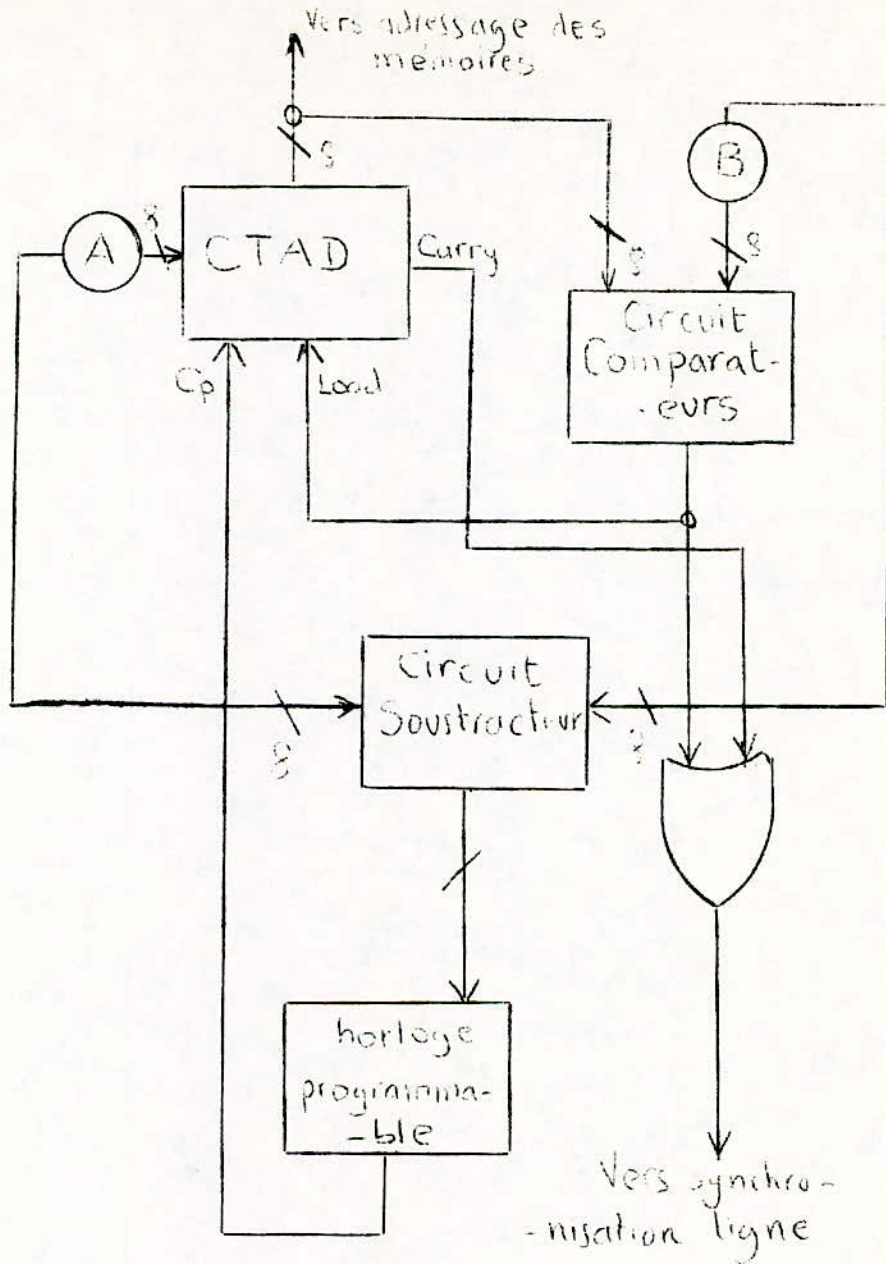 Vers adressage des
mémoires
8
8
B
A
8
CTAD
Carry
8
Circuit
Comparat-
-eurs
Cp
Load
Circuit
Soustracteur
8
8
horloge
programma-
-ble
Vers synchro-
-nisation ligne